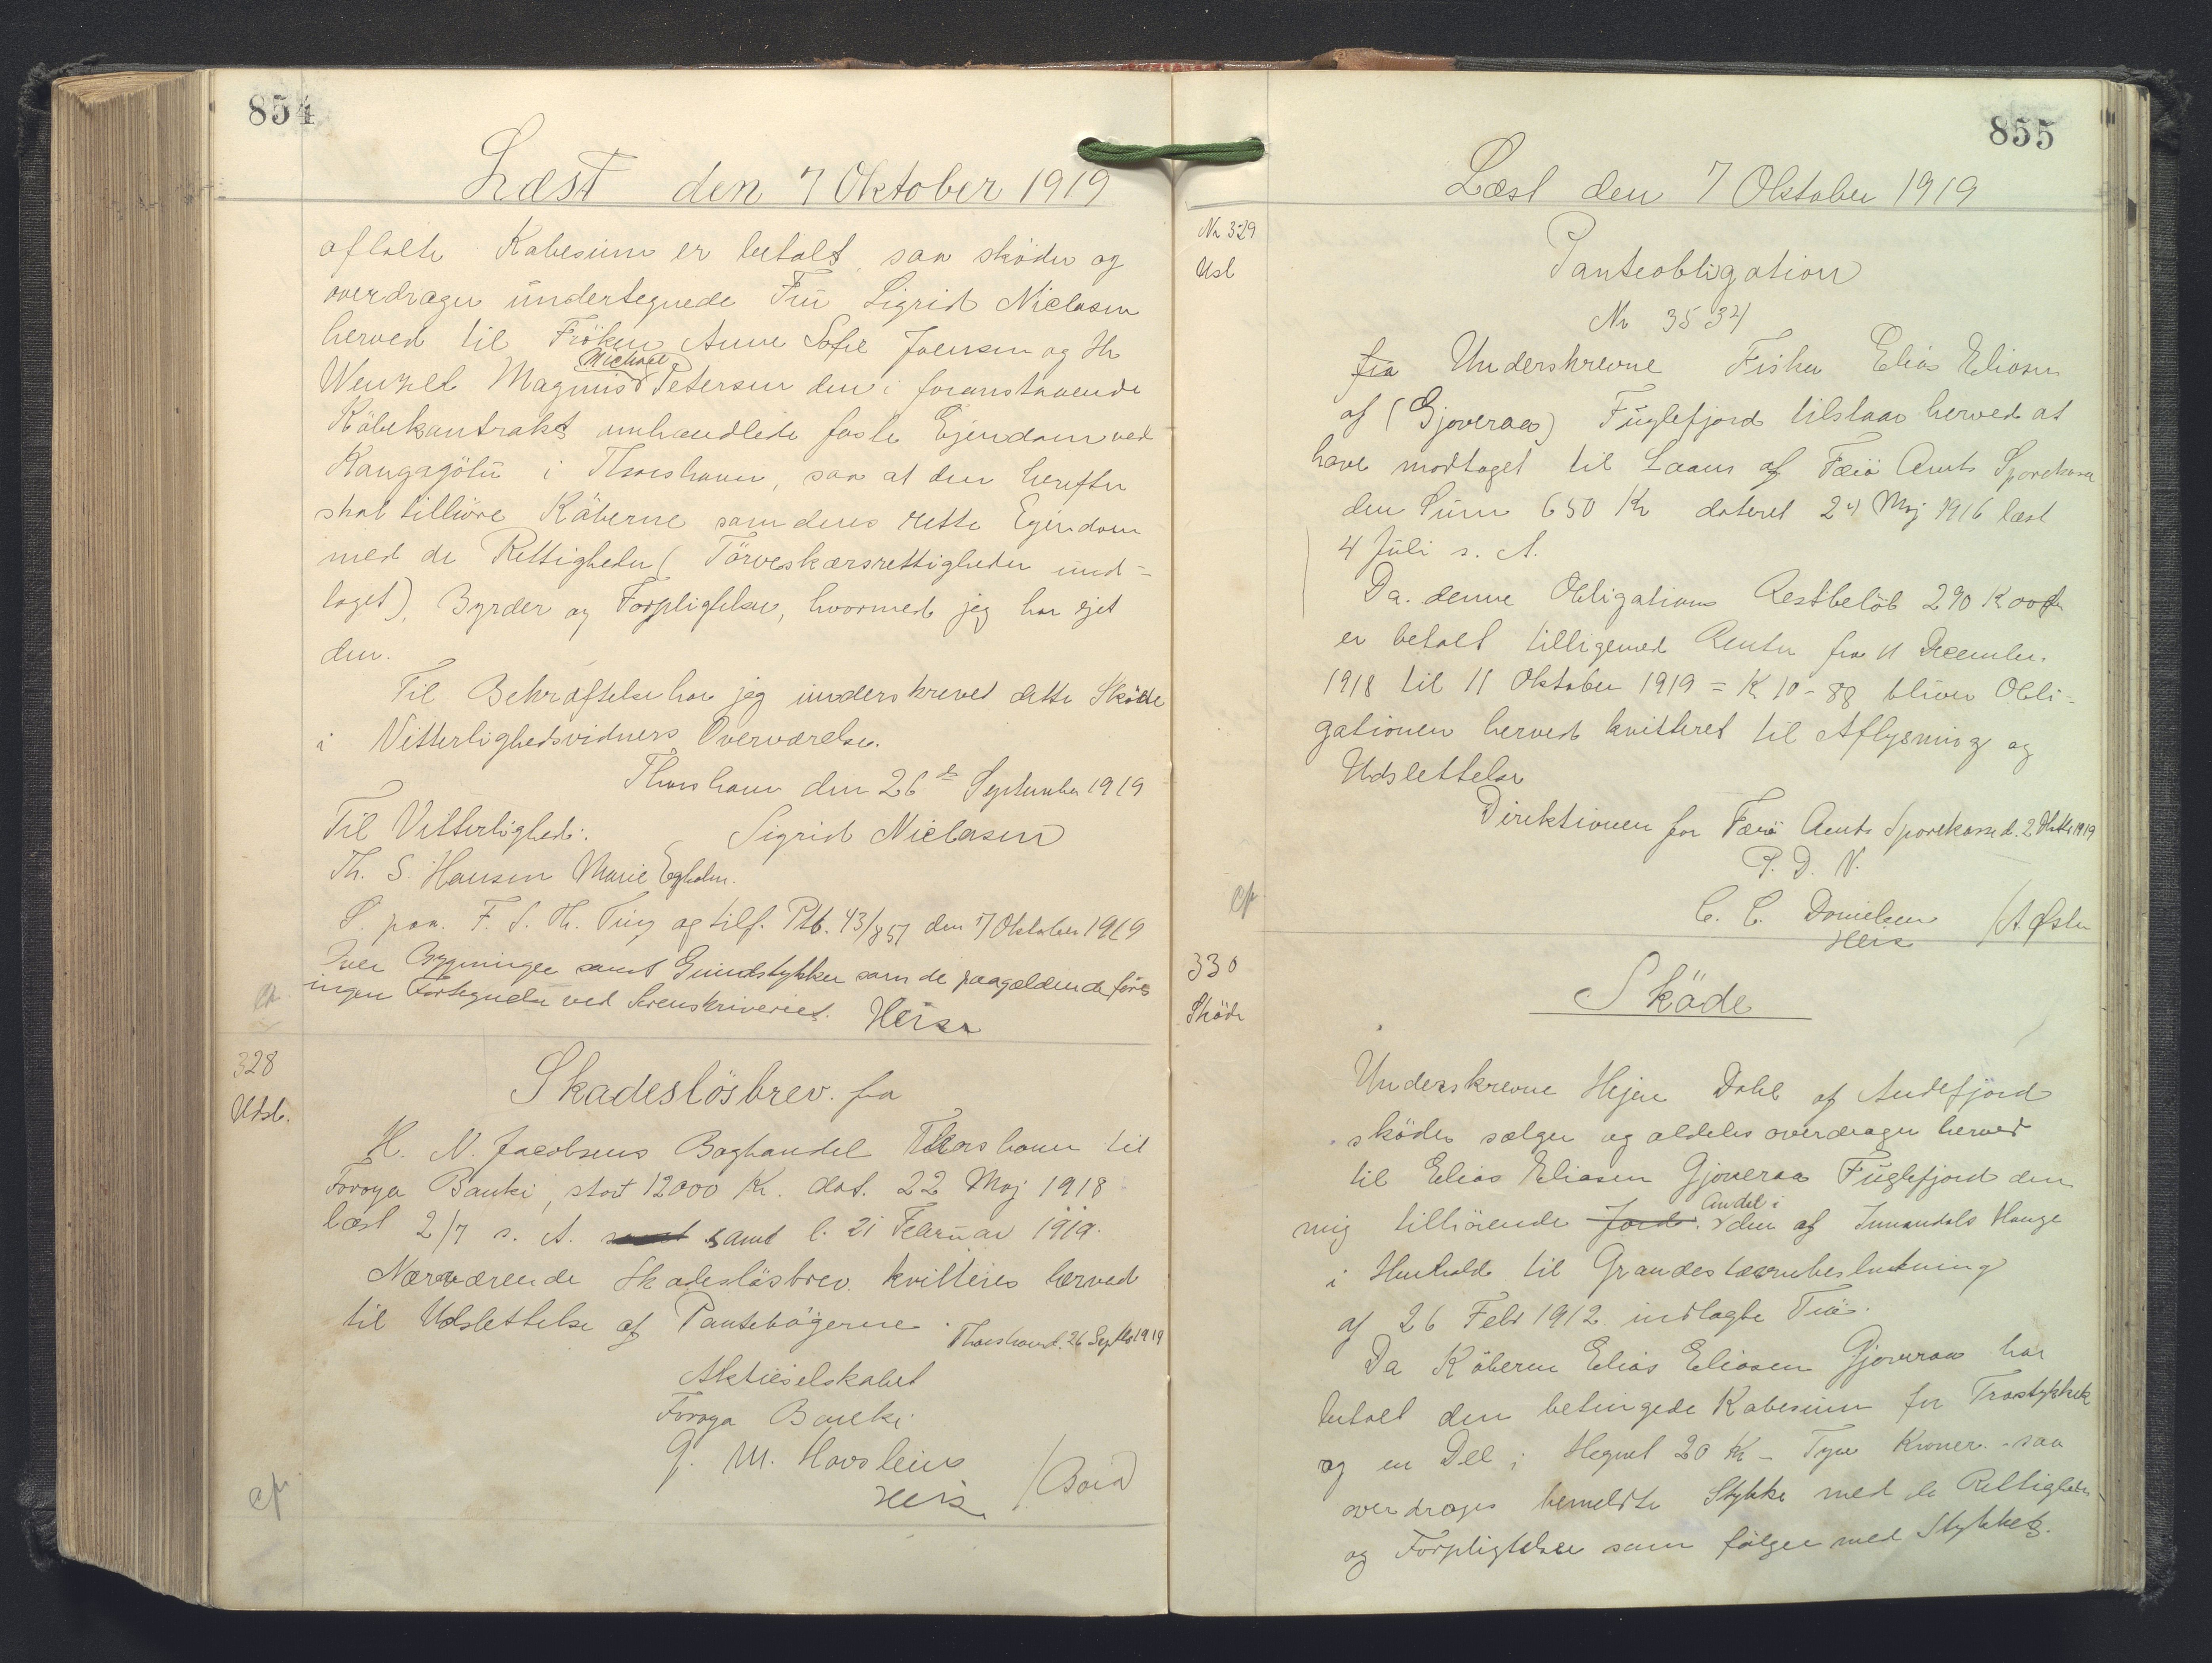 854
Læst den 7 Oktober 1919
aftalte Købesum er betalt, saa sköder og
overdrager undertegnede Fru Sigrid Niclasen
herved til Fröken Anne Sofie Joensen og Hr
Michael
Wenzel Magnus Petersen den i foranstaaende
Köbekontrakt omhandlede faste Ejendom ved
Kongagötu i Thorshavn, saa at den herefter
skal tilhöre Köberne som deres rette Ejendom
med de Rettigheder (Törveskærsrettigheder und-
taget), Byrder og Forpligtelser, hvormed jeg har ejet
den.
Til Bekræftelse har jeg underskrevet dette Sköde
i Vitterlighedsvidners Overværelse.
Thorshavn den 26de September 1919
Til Vitterlighed: Sigrid Niclasen
Th. S. Hansen Marie Egholm.
S. paa F. S. Th. Ting og tilf. Ptb. 43/851 den 7 Oktober 1919
Over Bygninger samt Grundstykker som de paagældende föres
ingen Fortegnelse ved Sorenskriveriet. Heise
328
Udsl.
Skadeslösbrev. fra
H. N. Jacobsens Boghandel Thorshavn til
Foroya Banki, stort 12000 Kr. dat. 22 Maj 1918
læst 2/7 s. A. samt l. 21 Februar 1919.
Nærværende Skadeslösbrev kvitteres herved
til Udslettelse af Pantebögerne.
Thorshavn d. 26 Septbr 1919
Aktieselskabet
Foroya Banki
Heise
855
Læst den 7 Oktober 1919
Nr 329
Usl
Panteobligation
Nr 3534
fra Underskrevne Fisker Elias Eliasen
af (Gjoveraa) Fuglefjord tilstaar herved at
have modtaget til Laans af Færö Amts Sparekasse
den Sum 650 Kr dateret 24 Maj 1916 læst
4 Juli s. A.
Da denne Obligations Restbelöb 290 K 00 Ør
er betalt tilligemed Renter fra 11 December
1918 til 11 Oktober 1919 = K 10-88 bliver Obli-
gationen herved kvitteret til Aflysning og
Udslettelse
Direktionen for Færö Amts Sparekasse d. 2 Oktbr 1919
P. D. V.
C. C. Danielsen
Heise
330
Sköde
Sköde
Underskrevne Hejne Dahl af Andefjord
sköder sælger og aldeles overdrager herved
til Elias Eliasen Gjoveraa Fuglefjord den
Andel i
mig tilhörende Jord. den af Innandals Hauge
i Henhold til Grandestævnebeslutning
af 26 Febr 1912 indlagte Trö.
Da Köberen Elias Eliasen Gjoveraa har
betalt den betingede Købesum for Tröstykket
og en Del i Hegnet 20 Kr - Tyve Kroner - saa
overdrages bemeldte Stykke med de Rettigheder
og Forpligtelser som fölger med Stykket.